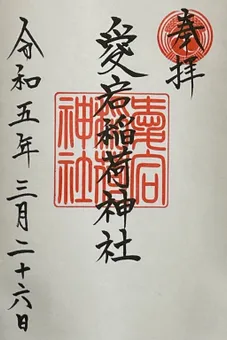 奉拝
愛宕稲荷神社
令和五年三月二十六日
愛宕
神社